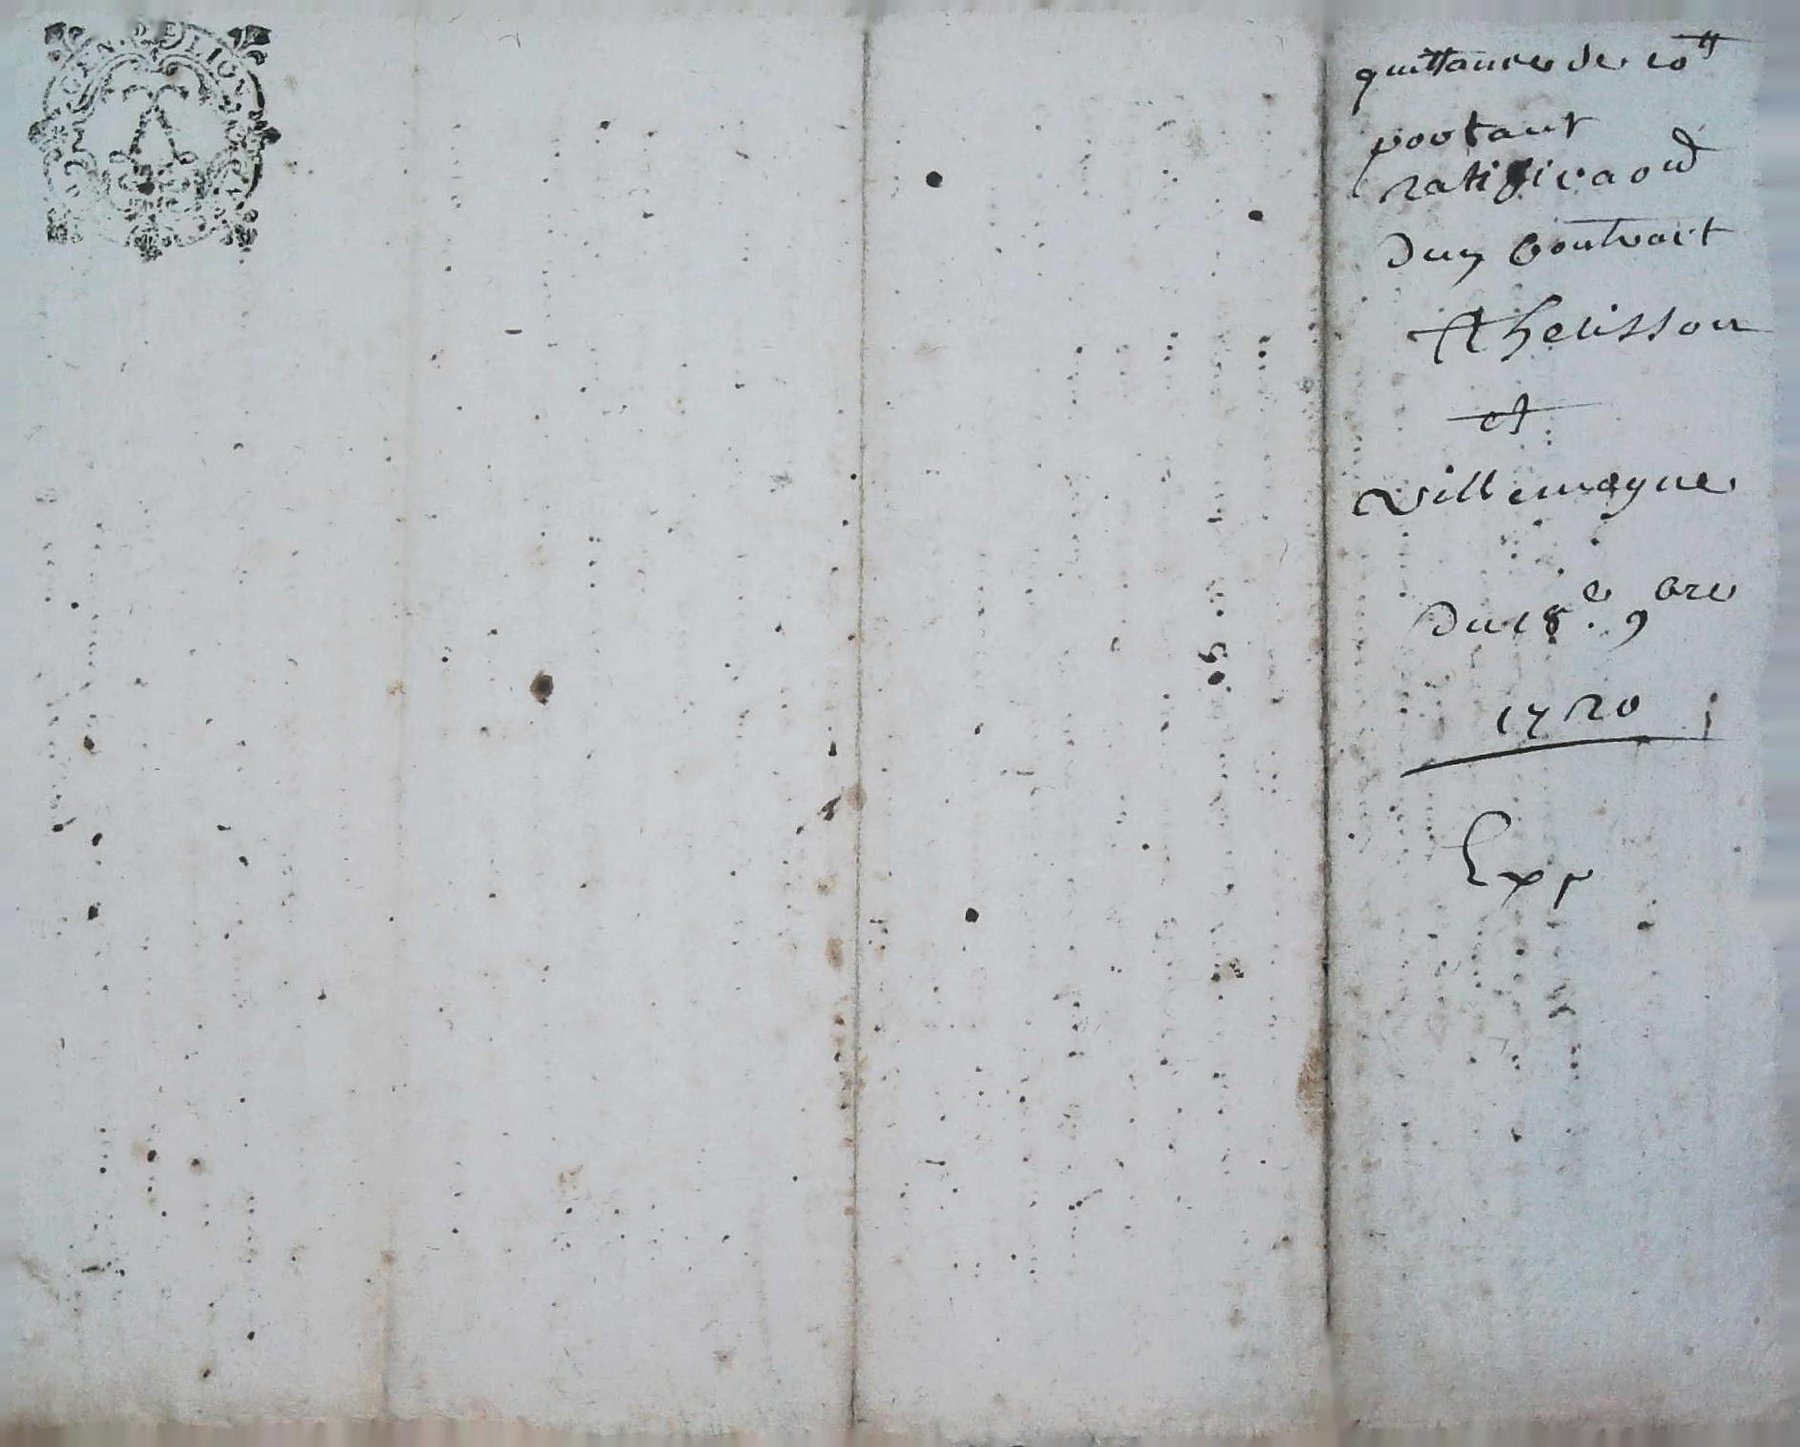 GEN. DE LION
quittance de 10tt
portant
ratificaon
dun Contract
Thelisson
et
villemagne
du 18e. 9bre
1720
Exp